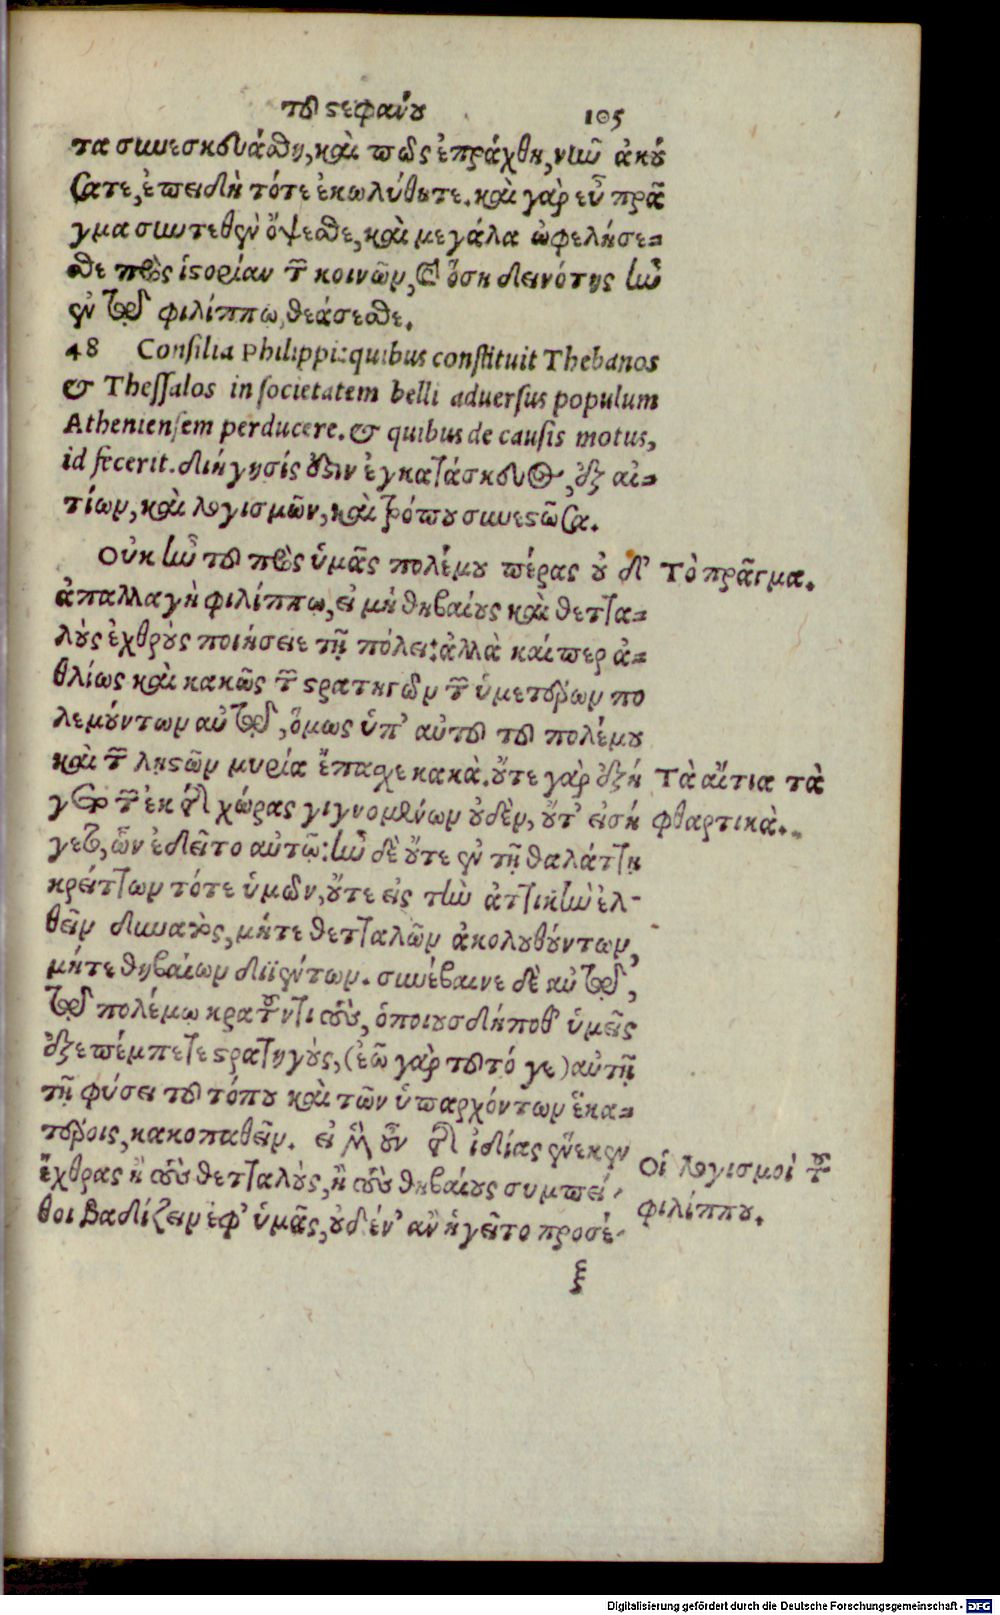 τοῦ στεφάνου 105
τα συνεσκευάσθη, καὶ πῶς ἐπράχθη, νῦν ἀκού
σατε, ἐπειδὴ τότε ἐκωλύθητε. καὶ γὰρ εὖ πρᾶ
γμα συντεθὲν ὄψεσθε, καὶ μεγάλα ὠφελήσε-
σθε πρὸς ἱστορίαν τῶν κοινῶν, καὶ ὅση δεινότης ἦν
ἐν τῷ φιλίππῳ, θεάσεσθε.
48 Consilia Philippi: quibus constituit Thebanos
& Thessalos in societatem belli aduersus populum
Atheniensem perducere. & quibus de causis motus,
id fecerit. διήγησίς ἐστιν ἐγκατάσκευος, ἐξ αἰ-
τίων, καὶ λογισμῶν, καὶ τρόπου συνεστῶσα.
Οὐκ ἦν τοῦ πρὸς ὑμᾶς πολέμου πέρας οὐδ' Τὸ πρᾶγμα.
ἀπαλλαγὴ φιλίππῳ, εἰ μὴ θηβαίους καὶ θετTα-
λοὺς ἐχθροὺς ποιήσειε τῇ πόλει: ἀλλὰ καίπερ ἀ-
θλίως καὶ κακῶς τῶν στρατηγῶν τῶν ὑμετέρων πο
λεμούντων αὐτῷ, ὅμως ὑπ' αὐτοῦ τοῦ πολέμου
καὶ τῶν λῃστῶν μυρία ἔπασχε κακά. οὔτε γὰρ ἐξή Τὰ αἴτια τὰ
γετο τῶν ἐκ τῆς χώρας γιγνομένων οὐδέν, οὔτ' εἰσή φθαρτικά.
γετο, ὧν ἐδεῖτο αὐτῷ: ἦν δὲ οὔτε ἐν τῇ θαλάττῃ
κρείττων τότε ὑμῶν, οὔτε εἰς τὴν ἀττικὴν ἐλ-
θεῖν δυνατὸς, μήτε θετταλῶν ἀκολουθούντων,
μήτε θηβαίων διϊέντων. συνέβαινε δὲ αὐτῷ,
τῷ πολέμῳ κρατοῦντι τοὺς, ὁποιουσδήποθ' ὑμεῖς
ἐξεπέμπετε στρατηγούς, (ἐῶ γὰρ τοῦτό γε) αὐτῇ
τῇ φύσει τοῦ τόπου καὶ τῶν ὑπαρχόντων ἑκα-
τέροις, κακοπαθεῖν. εἰ μὲν οὖν τῆς ἰδίας ἕνεκεν
ἔχθρας ἢ τοὺς θετταλούς, ἢ τοὺς θηβαίους συμπεί- Οἱ λογισμοὶ τοῦ
θοι βαδίζειν ἐφ' ὑμᾶς, οὐδέν' ἂν ἡγεῖτο προσέ- φιλίππου.
ξ
Digitalisierung gefördert durch die Deutsche Forschungsgemeinschaft - DFG